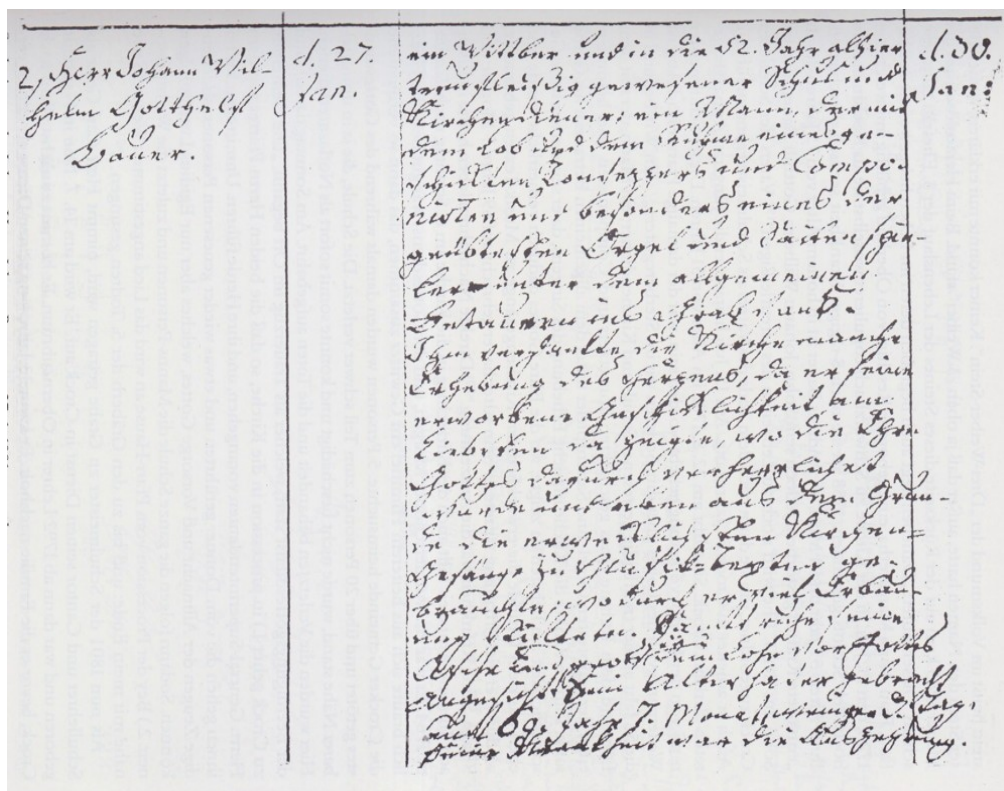 2, Herr Johann Wil-
helm Gotthelf
Bauer.
d. 27.
Jan.
ein Wittber und in die 52. Jahr alhier
treufleisig gewesener Schul und
Kirchendiener; ein Mann, der mit
dem Lob und dem Ruhme eines ge-
schickten Tonsezzers und Compo-
nisten und besonders eines der
geübtesten Orgel und Saiten spie-
ler unter dem allgemeinen
Betauern ins Grab sank.
Ihm verdankte die Kirche manche
Erhebung des Herzens, da er seine
erworbene Geschiklichkeit am
Liebsten da zeigte, wo die Ehre
Gottes dadurch verherrlichet
wurde und eben aus dem Grun-
de die erweklichsten Kirchen-
Gesänge zu Musik-Texten ge-
brauchte, wodurch er viel Erbau-
ung stiftete. Sanft ruhe seine
Asche und groß sein Lohn vor Gottes
Angesicht. Sein Alter hat er gebracht
auf Jahr Monat weniger Tag.
Seine Krankheit war die Auszehrung.
d. 30.
Jan: